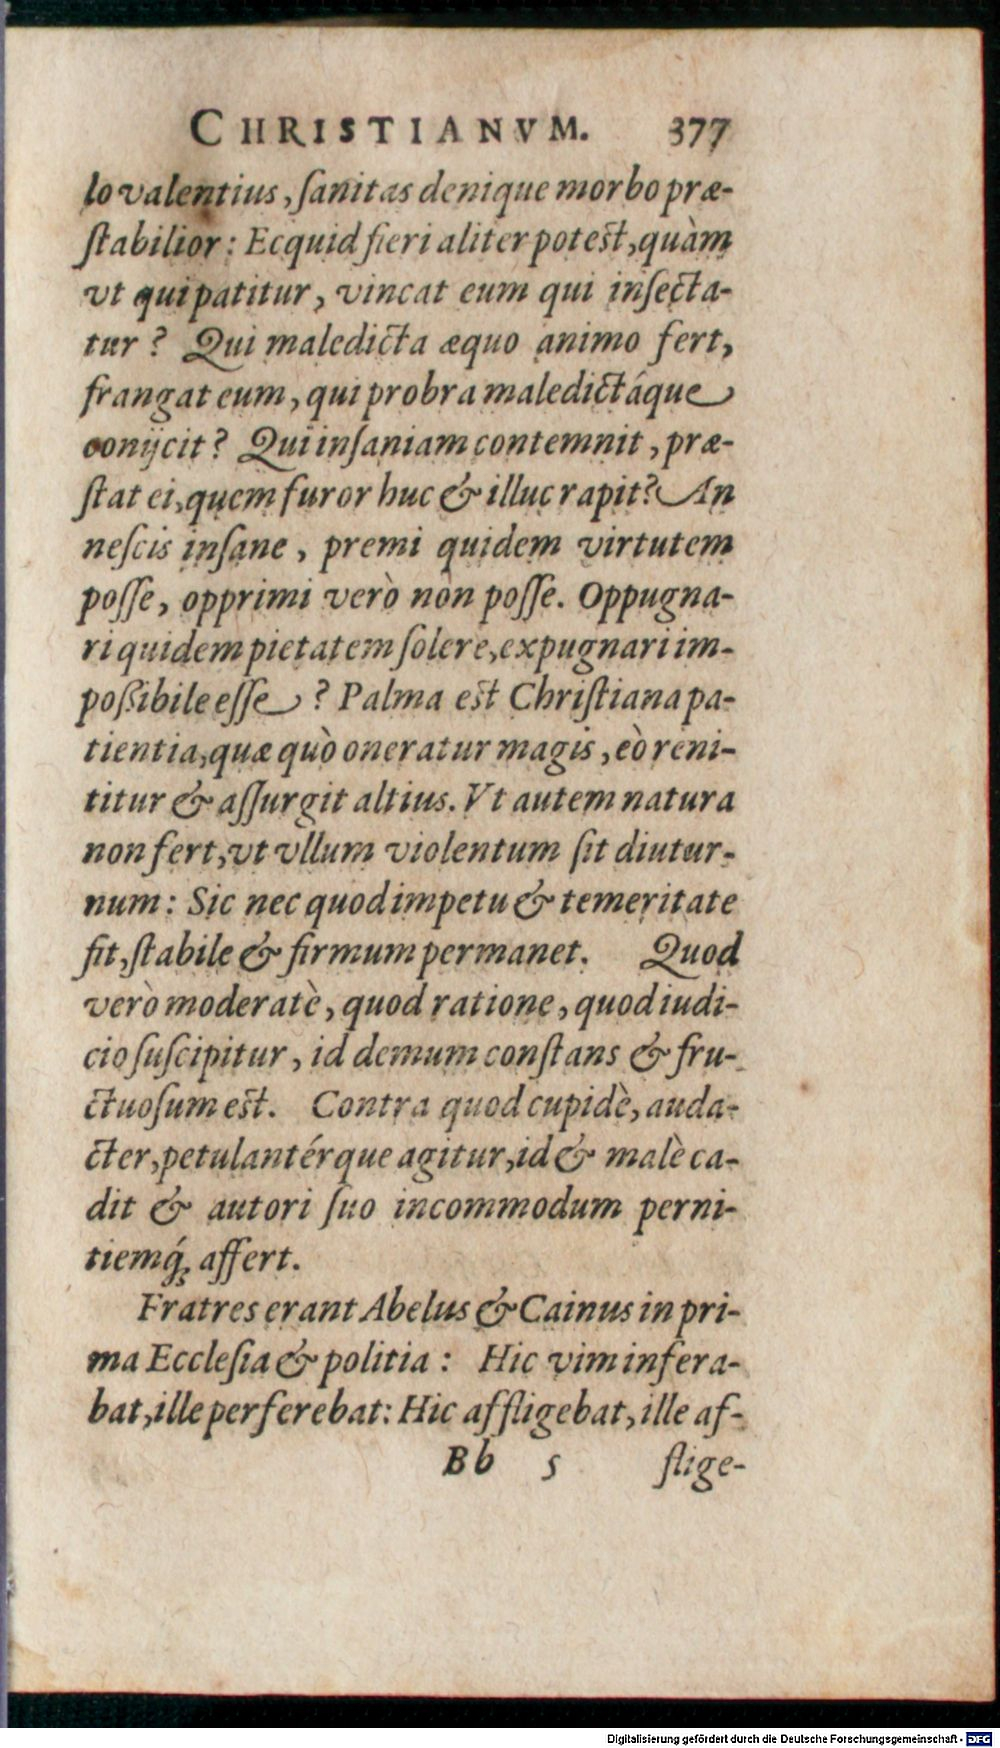 CHRISTIANVM. 377
lo valentius, ſanitas denique morbo præ-
ſtabilior: Ecquid fieri aliter potest, quàm
vt qui patitur, vincat eum qui inſecta-
tur? Qui maledicta æquo animo fert,
frangat eum, qui probra maledictáque
conijcit? Qui inſaniam contemnit, præ-
ſtat ei, quem furor huc & illuc rapit? An
neſcis inſane, premi quidem virtutem
poſſe, opprimi verò non poſſe. Oppugna-
ri quidem pietatem ſolere, expugnari im-
poßibile eſſe? Palma est Chriſtiana pa-
tientia, quæ quò oneratur magis, eò reni-
titur & aſſurgit altius. Vt autem natura
non fert, vt vllum violentum ſit diutur-
num: Sic nec quod impetu & temeritate
fit, ſtabile & firmum permanet. Quod
verò moderatè, quod ratione, quod iudi-
cio ſuſcipitur, id demum conſtans & fru-
ctuoſum est. Contra quod cupidè, auda-
cter, petulantérque agitur, id & malè ca-
dit & autori ſuo incommodum perni-
tiemq́; affert.
Fratres erant Abelus & Cainus in pri-
ma Eccleſia & politia: Hic vim infera-
bat, ille perferebat: Hic affligebat, ille af-
Bb 5 flige-
Digitalisierung gefördert durch die Deutsche Forschungsgemeinschaft - DFG